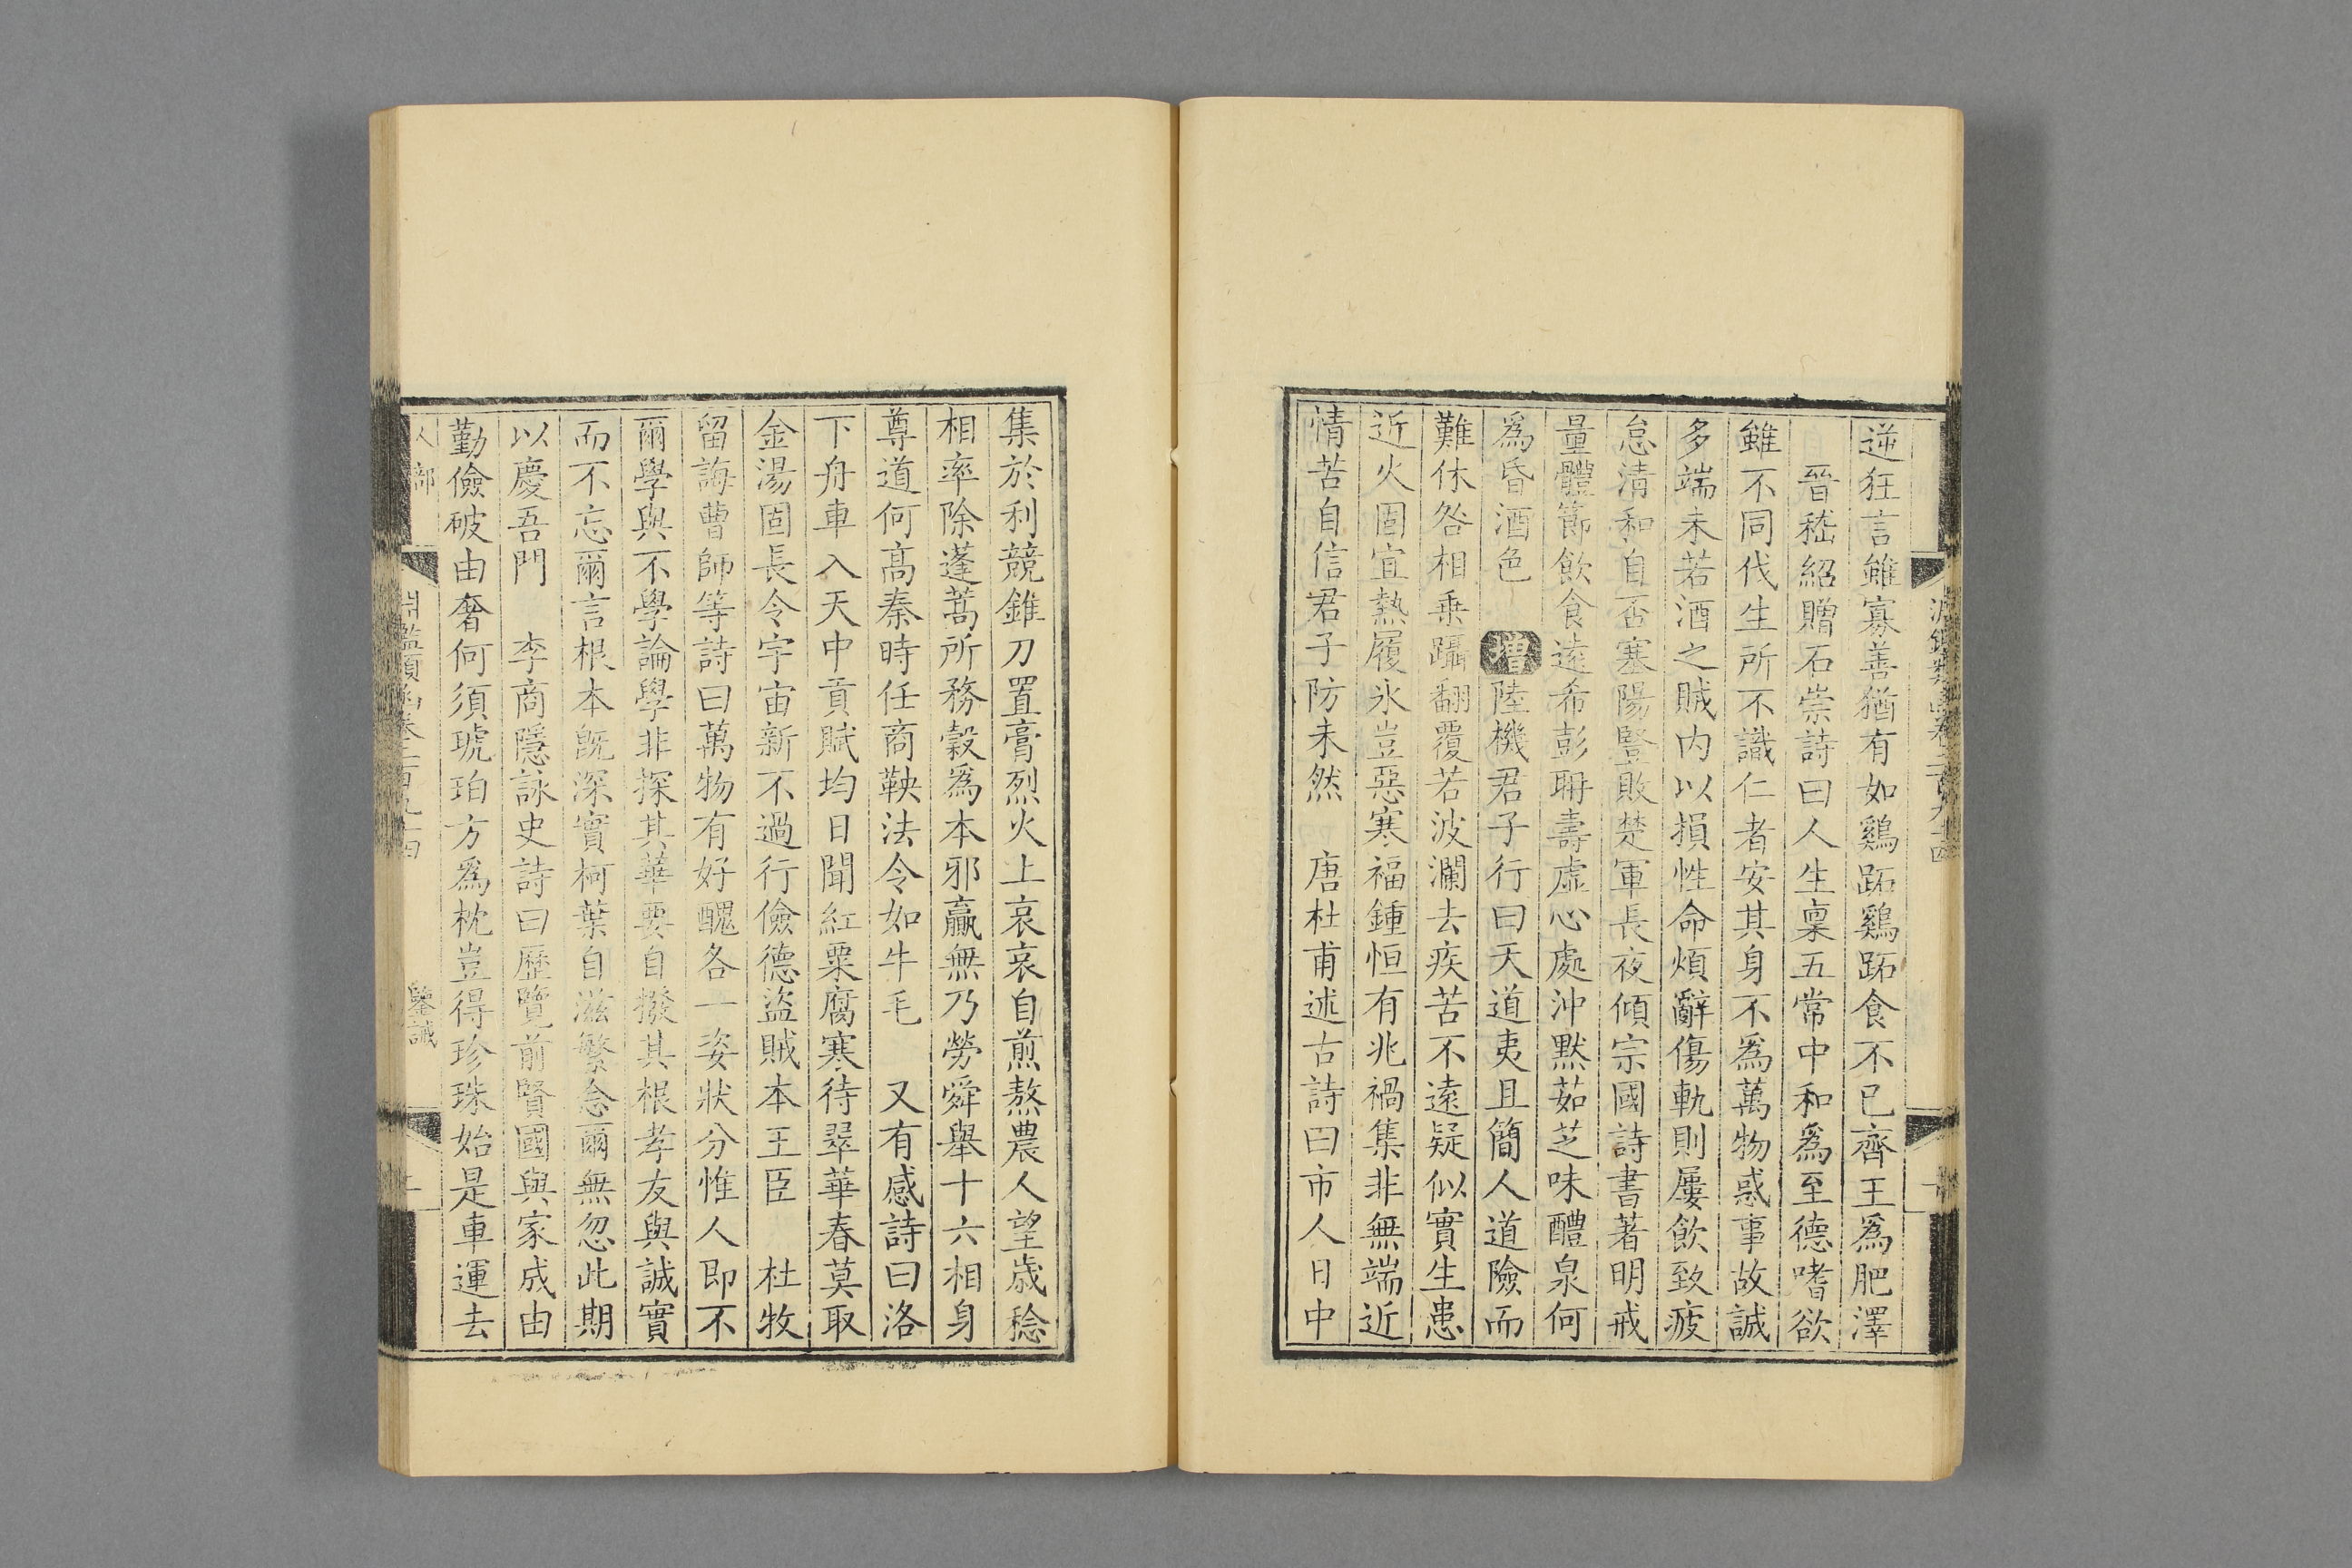 逆狂言雖寡善猶有如鷄跖鷄跖食不已齊王爲肥澤
晉嵇紹贈石崇詩曰人生稟五常中和爲至德嗜欲
雖不同伐生所不識仁者安其身不爲萬物惑事故誠
多端未若酒之賊内以損性命煩辭傷軌則屢飲致疲
怠清和自否塞陽豎敗楚軍長夜傾宗國詩書著明戒
量體節飲食遠希彭聃壽虛心處沖默茹芝味醴泉何
爲昏酒色 增陸機君子行曰天道夷且簡人道險而
難休咎相乗躡翻覆若波瀾去疾苦不遠疑似實生患
近火固宜熱履氷豈惡寒福鍾恒有兆禍集非無端近
情苦自信君子防未然 唐杜甫述古詩曰市人日中
集於利競錐刀置膏烈火上哀哀自煎熬農人望歳稔
相率除蓬蒿所務穀爲本邪贏無乃勞舜舉十六相身
尊道何高秦時任商鞅法令如牛毛 又有感詩曰洛
下舟車入天中貢賦均日聞紅粟腐寒待翠華春莫取
金湯固長令宇宙新不過行儉德盜賊本王臣 杜牧
留誨曹師等詩曰萬物有好醜各一姿狀分惟人即不
爾學與不學論學非探其華要自撥其根孝友與誠實
而不忘爾言根本旣深實柯葉自滋繁念爾無忽此期
以慶吾門 李商隱詠史詩曰歷覽前賢國與家成由
勤儉破由奢何須琥珀方爲枕豈得珍珠始是車運去
人部 淵鑑類函卷二百九十四 鑒誡